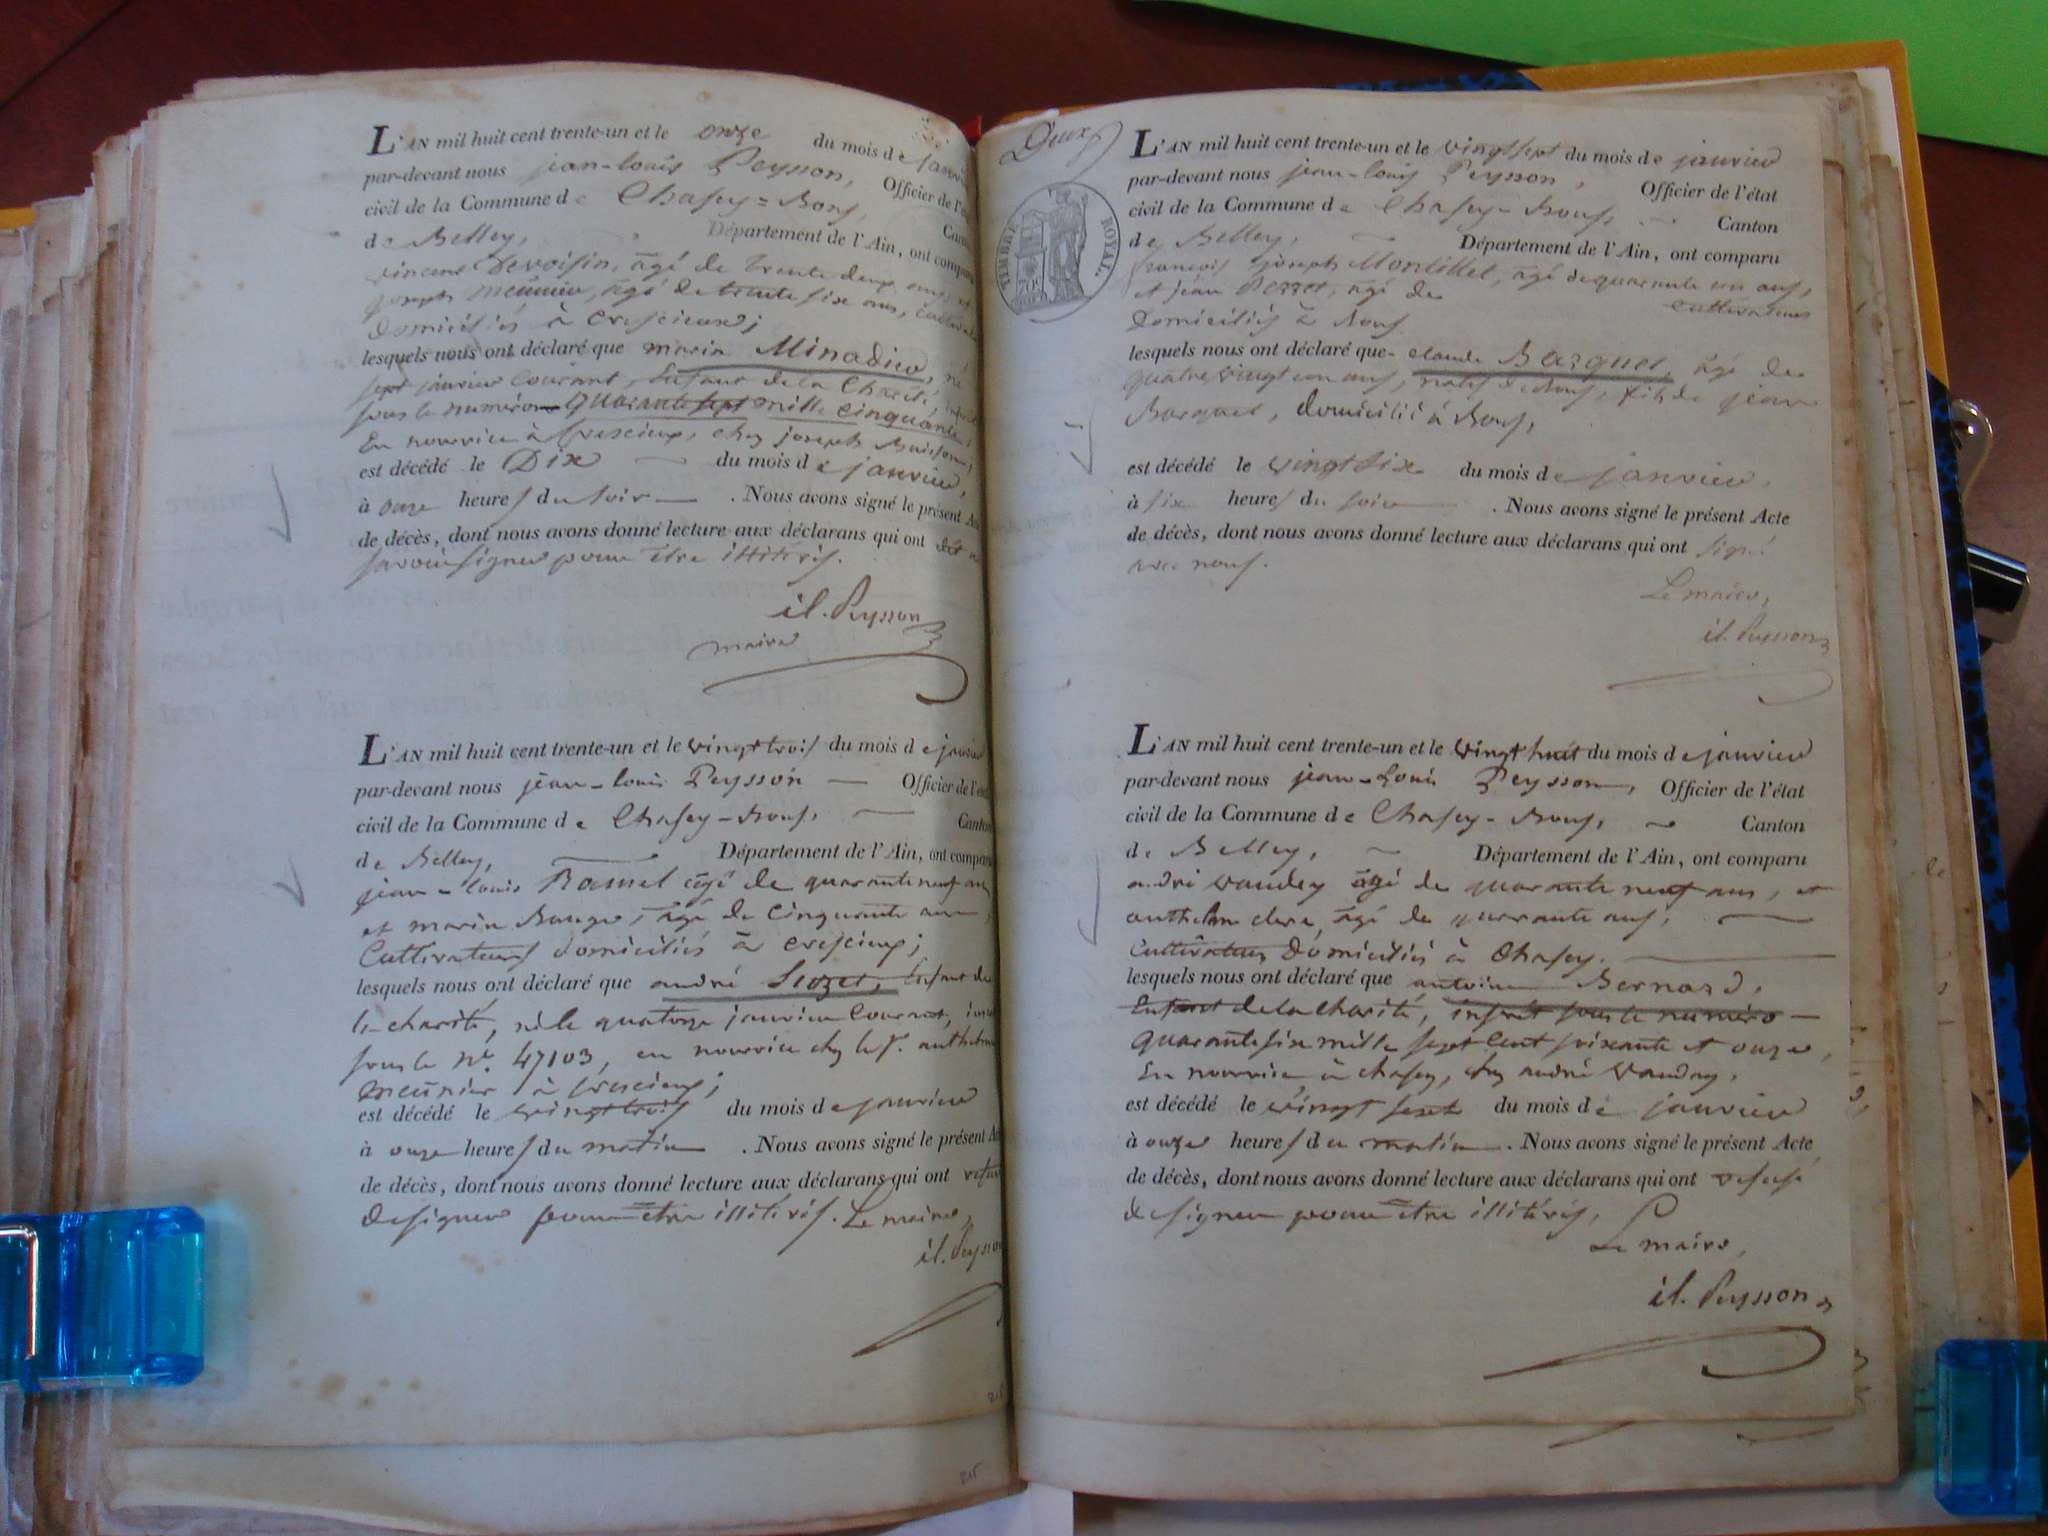 L'AN mil huit cent trente-un et le onze du mois de janvier
par-devant nous jean-louis Peysson, Officier de l'état
civil de la Commune de Chasey=Bons, Canton
de Belley, Département de l'Ain, ont comparu
vincent Devoisin, âgé de trente deux ans, et
joseph meunier, âgé de trente six ans,
domiciliés à Crescieux;
lesquels nous ont déclaré que marin Minadieu, né
sept janvier Courant, Enfant de la Charité,
sous le numéro quarante sept mille cinquante,
En nourrice à Crescieux, chez joseph Buisson,
est décédé le Dix du mois de janvier,
à onze heures du soir . Nous avons signé le présent Acte
de décès, dont nous avons donné lecture aux déclarans qui ont dit ne
savoir signer pour être illitérés.
jl. Peysson
maire
L'AN mil huit cent trente-un et le vingt trois du mois de janvier
par-devant nous jean-louis Peysson Officier de l'état
civil de la Commune de Chasey-Bons, Canton
de Belley, Département de l'Ain, ont comparu
jean-louis Ramel âgé de quarante neuf ans
et marin Bauge, âgé de Cinquante ans,
Cultivateurs domiciliés à Crescieux;
lesquels nous ont déclaré que andré Enfant de
la charité, né le quatorze janvier Courant,
sous le N°. 47103, en nourrice chez le S. anthelme
meunier à Crescieux;
est décédé le vingt trois du mois de janvier
à onze heures du matin . Nous avons signé le présent Acte
de décès, dont nous avons donné lecture aux déclarans qui ont refusé
de signer pour être illitérés. Le maire,
jl. Peysson
215
Deux
TIMBRE ROYAL.
70c
L'AN mil huit cent trente-un et le vingt sept du mois de janvier
par-devant nous jean-louis Peysson, Officier de l'état
civil de la Commune de Chasey-Bons, Canton
de Belley, Département de l'Ain, ont comparu
françois joseph Montillet, âgé de quarante un ans,
et jean Perret, âgé de cultivateurs
domiciliés à Bons
lesquels nous ont déclaré que claude Barquet, âgé de
quatre vingt un ans, natif de Bons, fils de jean
Barquet, domicilié à Bons,
est décédé le vingt six du mois de janvier,
à six heures du soir . Nous avons signé le présent Acte
de décès, dont nous avons donné lecture aux déclarans qui ont signé
avec nous.
Le maire,
jl. Peysson
L'AN mil huit cent trente-un et le vingt huit du mois de janvier
par-devant nous jean-Louis Peysson, Officier de l'état
civil de la Commune de Chasey-Bons, Canton
de Belley, Département de l'Ain, ont comparu
andré Vaudey âgé de quarante neuf ans, et
anthelme clerc, âgé de quarante ans,
Cultivateurs Domiciliés à Chasey.
lesquels nous ont déclaré que antoine Bernard,
Enfant de la charité, inscrit sous le numéro
quarante six mille sept Cent soixante et onze,
En nourrice à chasey, chez andré Vaudey,
est décédé le vingt sept du mois de janvier
à onze heures du matin . Nous avons signé le présent Acte
de décès, dont nous avons donné lecture aux déclarans qui ont refusé
de signer pour être illitérés,
Le maire,
jl. Peysson